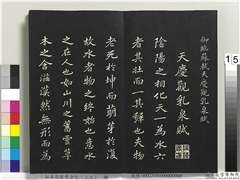 御臨蘇軾天慶觀乳泉賦
天慶觀乳泉賦
陰陽之相化天一為水六
者其壯而一其穉也夫物
老死於坤而萌芽於復
故水者物之終始也意水
之在人也如山川之蓄雲草
木之含滋漠然無形而為